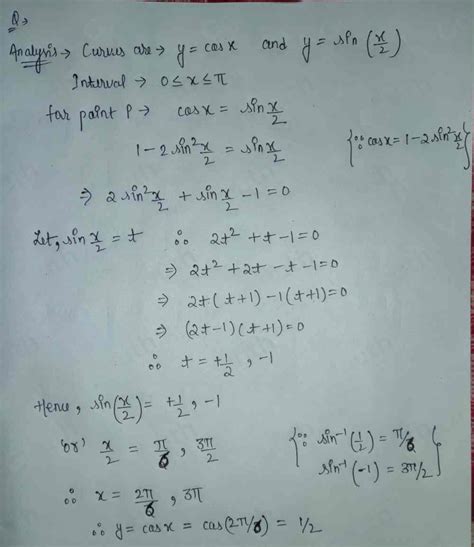 Q→
Analysis → Curves are → y = cos x and y = sin (x/2)
Interval → 0 ≤ x ≤ π
for point P → cos x = sin x/2
1 - 2 sin² x/2 = sin x/2 {∵ cos x = 1 - 2 sin² x/2}
⇒ 2 sin² x/2 + sin x/2 - 1 = 0
Let, sin x/2 = t ∴ 2t² + t - 1 = 0
⇒ 2t² + 2t - t - 1 = 0
⇒ 2t (t+1) - 1(t+1) = 0
⇒ (2t-1)(t+1) = 0
∴ t = +1/2, -1
Hence, sin(x/2) = +1/2, -1
'or' x/2 = π/6, 3π/2 {∵ sin⁻¹(1/2) = π/6
sin⁻¹(-1) = 3π/2}
∴ x = 2π/6, 3π
∴ y = cos x = cos(2π/6) = 1/2